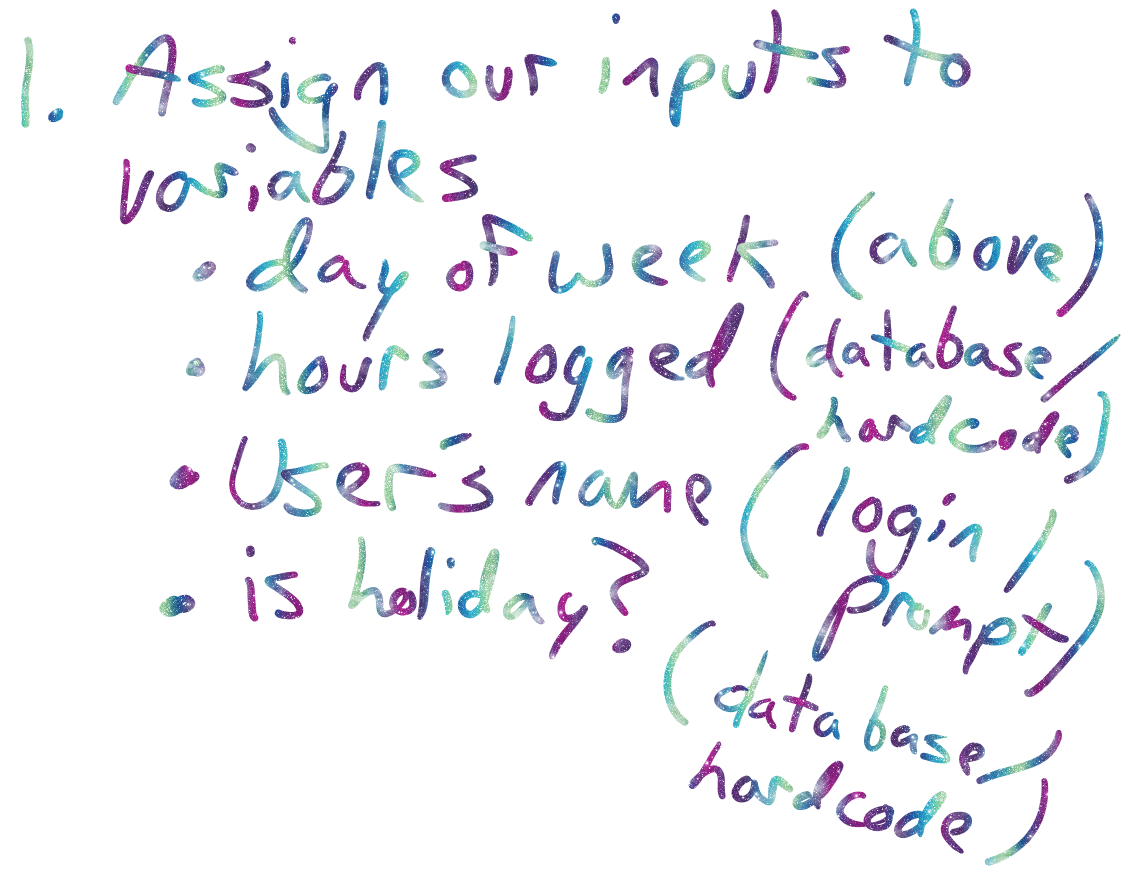 1. Assign our inputs to
variables
• day of week (above)
• hours logged (database/
hardcode)
• User's name (login/
prompt)
• is holiday?
(database/
hardcode)